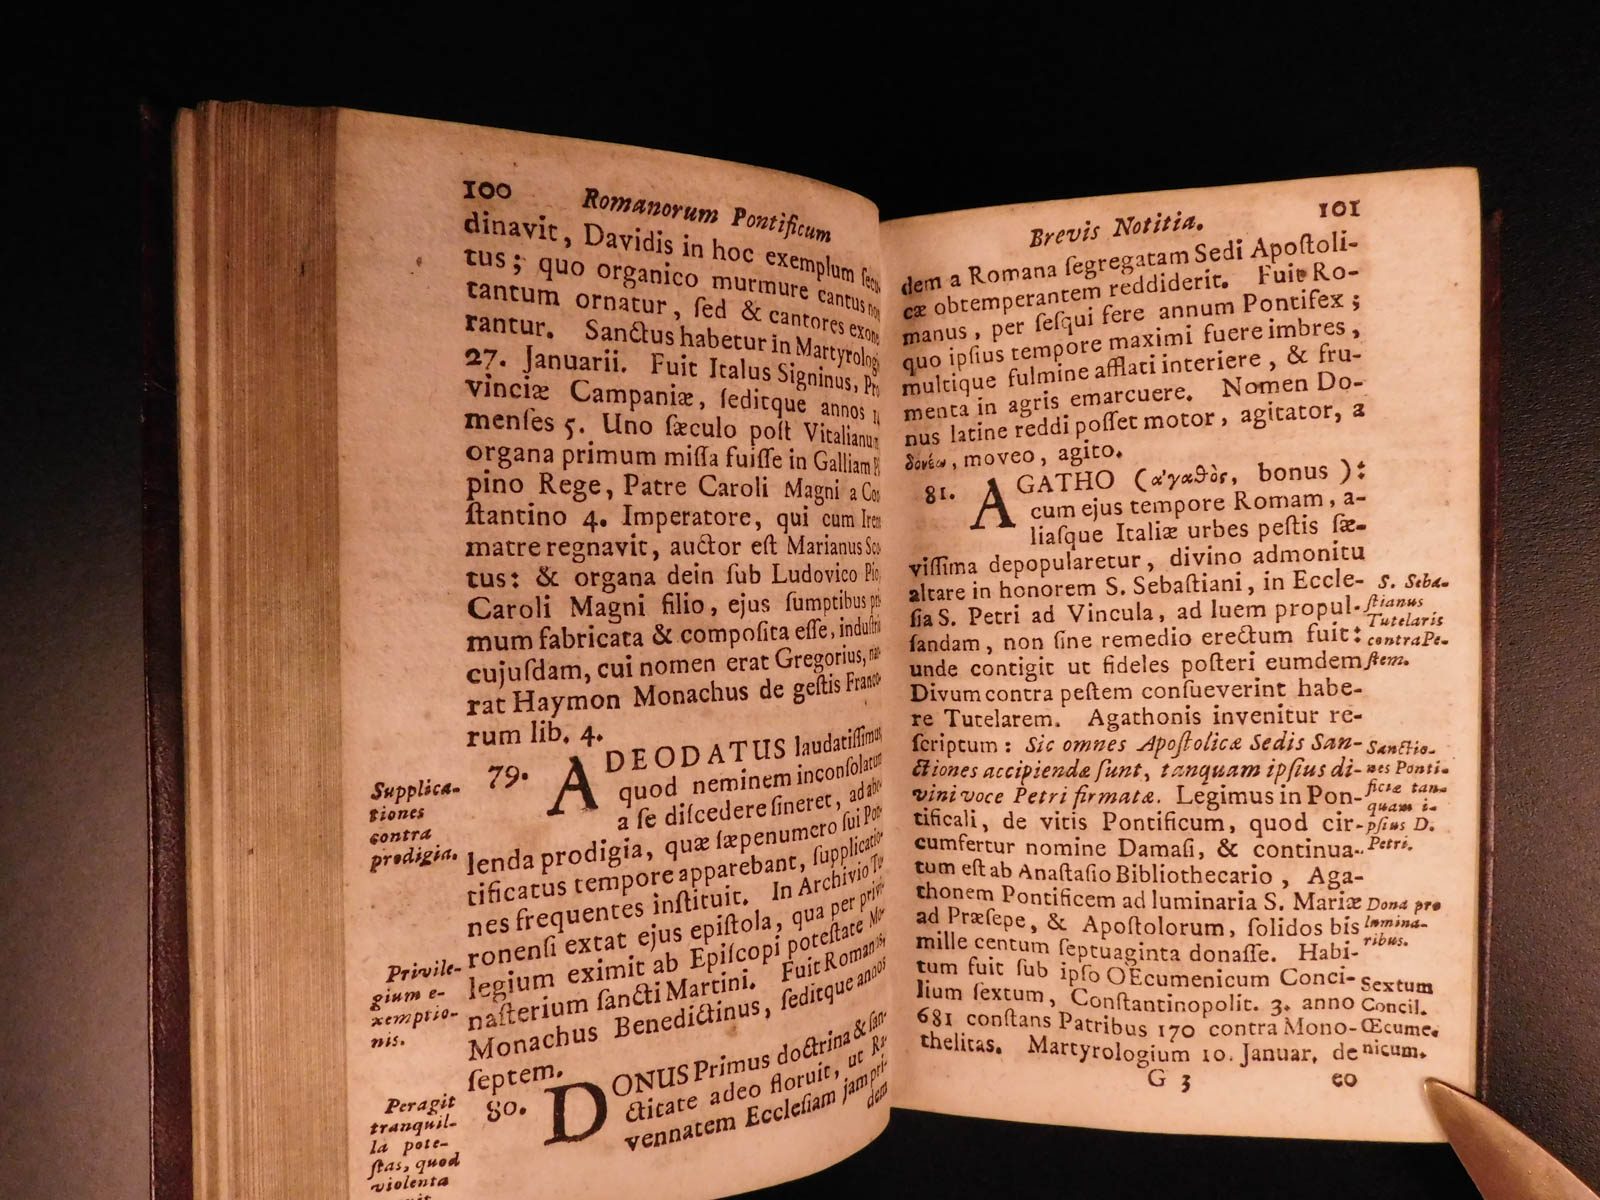 100 Romanorum Pontificum
dinavit, Davidis in hoc exemplum ſecu-
tus; quo organico murmure cantus non
tantum ornatur, ſed & cantores exone-
rantur. Sanctus habetur in Martyrolog.
27. Januarii. Fuit Italus Signinus, Pro-
vinciæ Campaniæ, ſeditque annos 14
menſes 5. Uno ſæculo poſt Vitalianum
organa primum miſſa fuiſſe in Galliam
pino Rege, Patre Caroli Magni a Con-
ſtantino 4. Imperatore, qui cum Irene
matre regnavit, auctor eſt Marianus Sco-
tus: & organa dein ſub Ludovico Pio,
Caroli Magni filio, ejus ſumptibus pri-
mum fabricata & compoſita eſſe, induſtria
cujuſdam, cui nomen erat Gregorius, nar-
rat Haymon Monachus de geſtis Franco-
rum lib. 4.
79. ADEODATUS laudatiſſimus,
quod neminem inconſolatum
a ſe diſcedere ſineret, ad abo-
lenda prodigia, quæ ſæpenumero ſui Pon-
tificatus tempore apparebant, ſupplicatio-
nes frequentes inſtituit. In Archivio Tu-
ronenſi extat ejus epiſtola, qua per privi-
legium eximit ab Epiſcopi poteſtate Mo-
naſterium ſancti Martini. Fuit Romanus,
Monachus Benedictinus, ſeditque annos
ſeptem.
80. DONUS Primus doctrina & ſan-
ctitate adeo floruit, ut Ra-
vennatem Eccleſiam jam pri-
dem
Supplica-
tiones
contra
prodigia.
Privile-
gium e-
xemptio-
nis.
Peragit
tranquil-
la pote-
ſtas, quod
violenta
Brevis Notitia. 101
dem a Romana ſegregatam Sedi Apoſtoli-
cæ obtemperantem reddiderit. Fuit Ro-
manus, per ſeſqui fere annum Pontifex;
quo ipſius tempore maximi fuere imbres,
multique fulmine afflati interiere, & fru-
menta in agris emarcuere. Nomen Do-
nus latine reddi poſſet motor, agitator, a
δονέω, moveo, agito.
81. AGATHO (ἀγαθὸς, bonus):
cum ejus tempore Romam, a-
liaſque Italiæ urbes peſtis ſæ-
viſſima depopularetur, divino admonitu
altare in honorem S. Sebaſtiani, in Eccle-
ſia S. Petri ad Vincula, ad luem propul-
ſandam, non ſine remedio erectum fuit:
unde contigit ut fideles poſteri eumdem
Divum contra peſtem conſueverint habe-
re Tutelarem. Agathonis invenitur re-
ſcriptum: Sic omnes Apoſtolicæ Sedis San-
ctiones accipiendæ ſunt, tanquam ipſius di-
vini voce Petri firmatæ. Legimus in Pon-
tificali, de vitis Pontificum, quod cir-
cumfertur nomine Damaſi, & continua-
tum eſt ab Anaſtaſio Bibliothecario, Aga-
thonem Pontificem ad luminaria S. Mariæ
ad Præſepe, & Apoſtolorum, ſolidos bis
mille centum ſeptuaginta donaſſe. Habi-
tum fuit ſub ipſo OEcumenicum Conci-
lium ſextum, Conſtantinopolit. 3. anno
681 conſtans Patribus 170 contra Mono-
thelitas. Martyrologium 10. Januar. de
G 3 eo
S. Seba-
ſtianus
Tutelaris
contra Pe-
ſtem.
Sanctio-
nes Ponti-
ficiæ tan-
quam i-
pſius D.
Petri.
Dona pro
lumina-
ribus.
Sextum
Concil.
Œcume-
nicum.